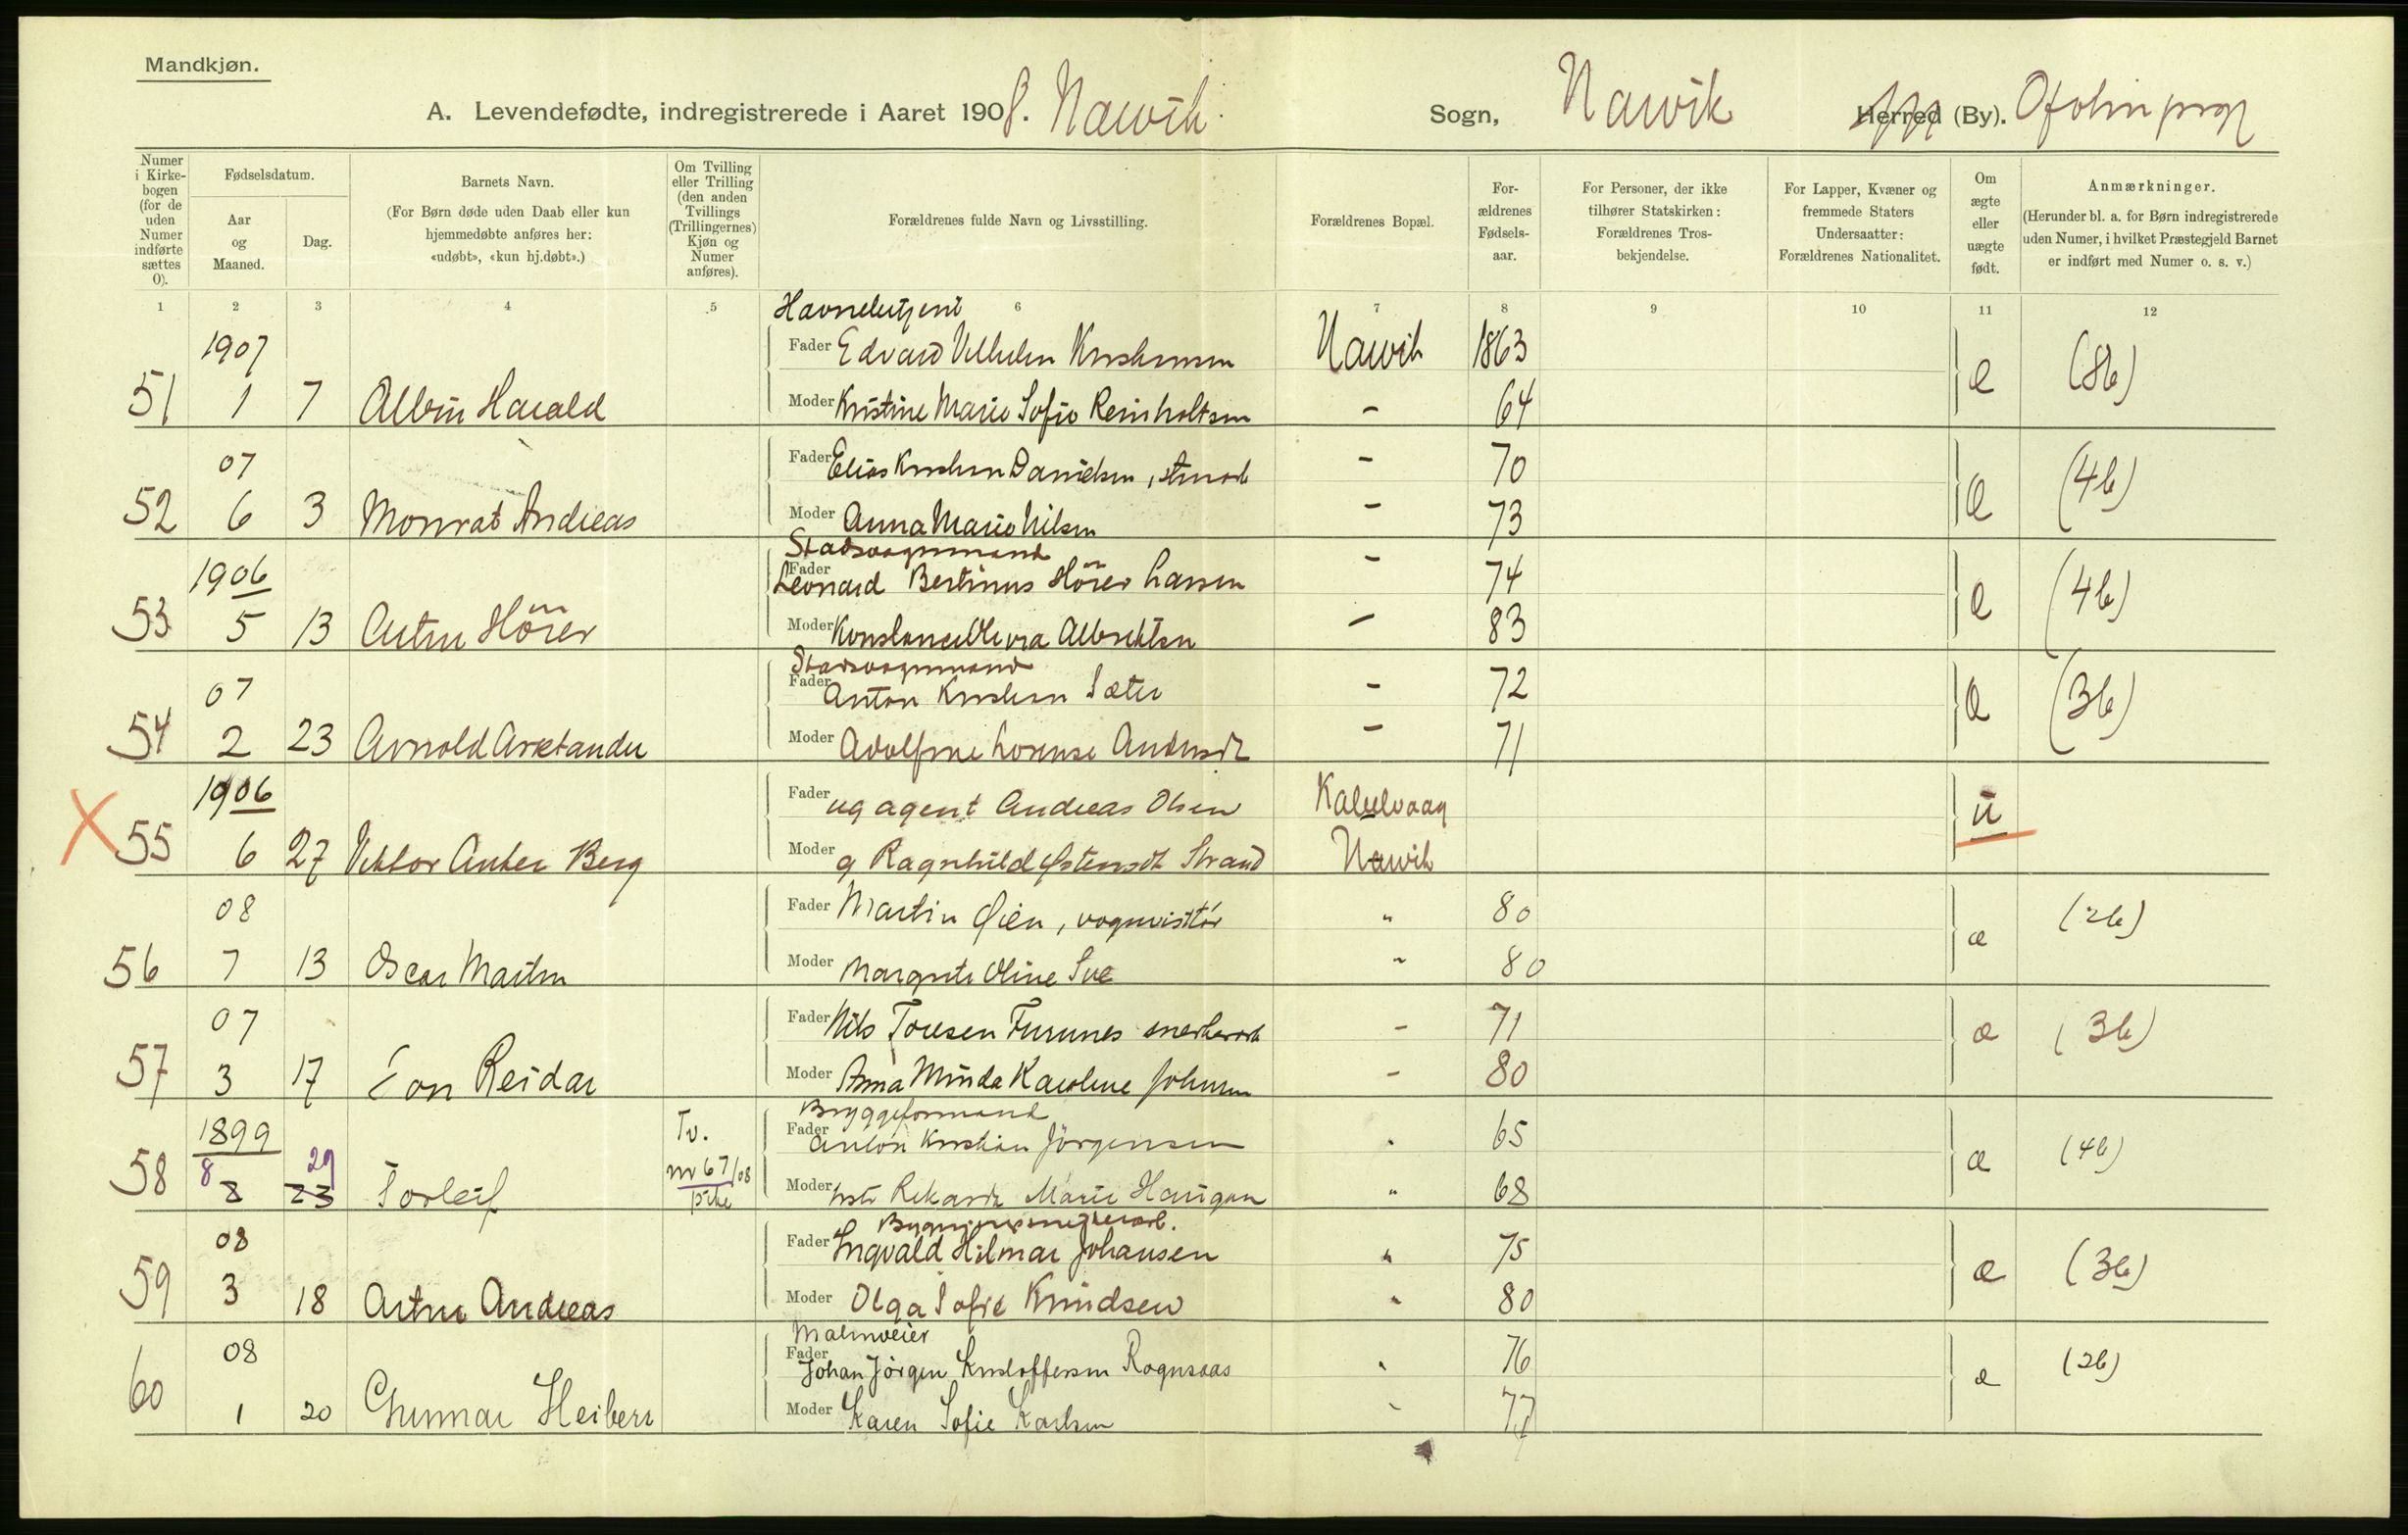 Mandkjøn.
A. Levendefødte, indregistrerede i Aaret 1908. Narvik Sogn, Narvik Herred (By). Ofoten prgj
Numer i Kirkebogen (for de uden Numer indførte sættes 0).
Fødselsdatum.
Aar og Maaned.
Dag.
Barnets Navn.
(For Børn døde uden Daab eller kun hjemmedøbte anføres her: «udøbt», «kun hj.døbt».)
Om Tvilling eller Trilling (den anden Tvillings (Trillingernes) Kjøn og Numer anføres).
Forældrenes fulde Navn og Livsstilling.
Forældrenes Bopæl.
Forældrenes Fødselsaar.
For Personer, der ikke tilhører Statskirken: Forældrenes Trosbekjendelse.
For Lapper, Kvæner og fremmede Staters Undersaatter: Forældrenes Nationalitet.
Om ægte eller uægte født.
Anmærkninger.
(Herunder bl. a. for Børn indregistrerede uden Numer, i hvilket Præstegjeld Barnet er indført med Numer o. s. v.)
1 2 3 4 5 6 7 8 9 10 11 12
Havnebetjent
1907 Fader Edvard Vilhelm Kristensen Narvik 1863
51 1 7 Albin Harald Moder Kristine Marie Sofie Reinholtsen - 64 æ (8b)
07 Fader Elias Kristian Danielsen, - 70
52 6 3 Monrat Andreas Moder Anna Marie Nilsen - 73 æ (4b)
Stadsvognmand
1906 Fader Leonard Bertinus Hörer Larsen - 74
53 5 13 Artur Hörer Moder Konstance Olivia Albrektsen - 83 æ (4b)
Stadsvognmand
07 Fader Anton Kristian Sæter - 72
54 2 23 Arnold Arctander Moder Adolfine Lorense Andersdt - 71 æ (3b)
1906 Fader ug agent Andreas Olsen Kalvaag
X 55 6 27 Viktor Anker Berg Moder g Ragnhild Østensdt Strand Narvik u
08 Fader Martin Øien, vognvisitör " 80
56 7 13 Oscar Martin Moder Margrete Oline Sve " 80 æ (2b)
07 Fader Nils Toresen Furunes snekkerarb - 71
57 3 17 Tor Reidar Moder Anna Minda Karoline Johnsen - 80 æ (3b)
Bryggeformand
1899 Tv. Fader Anton Kristian Jörgensen " 65
58 8 8 29 23 Torleif nr 67/08 pike Moder Rikarda Marie Haugan " 68 æ (4b)
Bygningssnekkerarb.
08 Fader Ingvald Hilmar Johansen " 75
59 3 18 Artur Andreas Moder Olga Sofie Knudsen " 80 æ (3b)
Malmveier
08 Fader Johan Jörgen Kristoffersen Rognsaas " 76
60 1 20 Gunnar Heiberg Moder Karen Sofie Karlsen - 77 æ (2b)